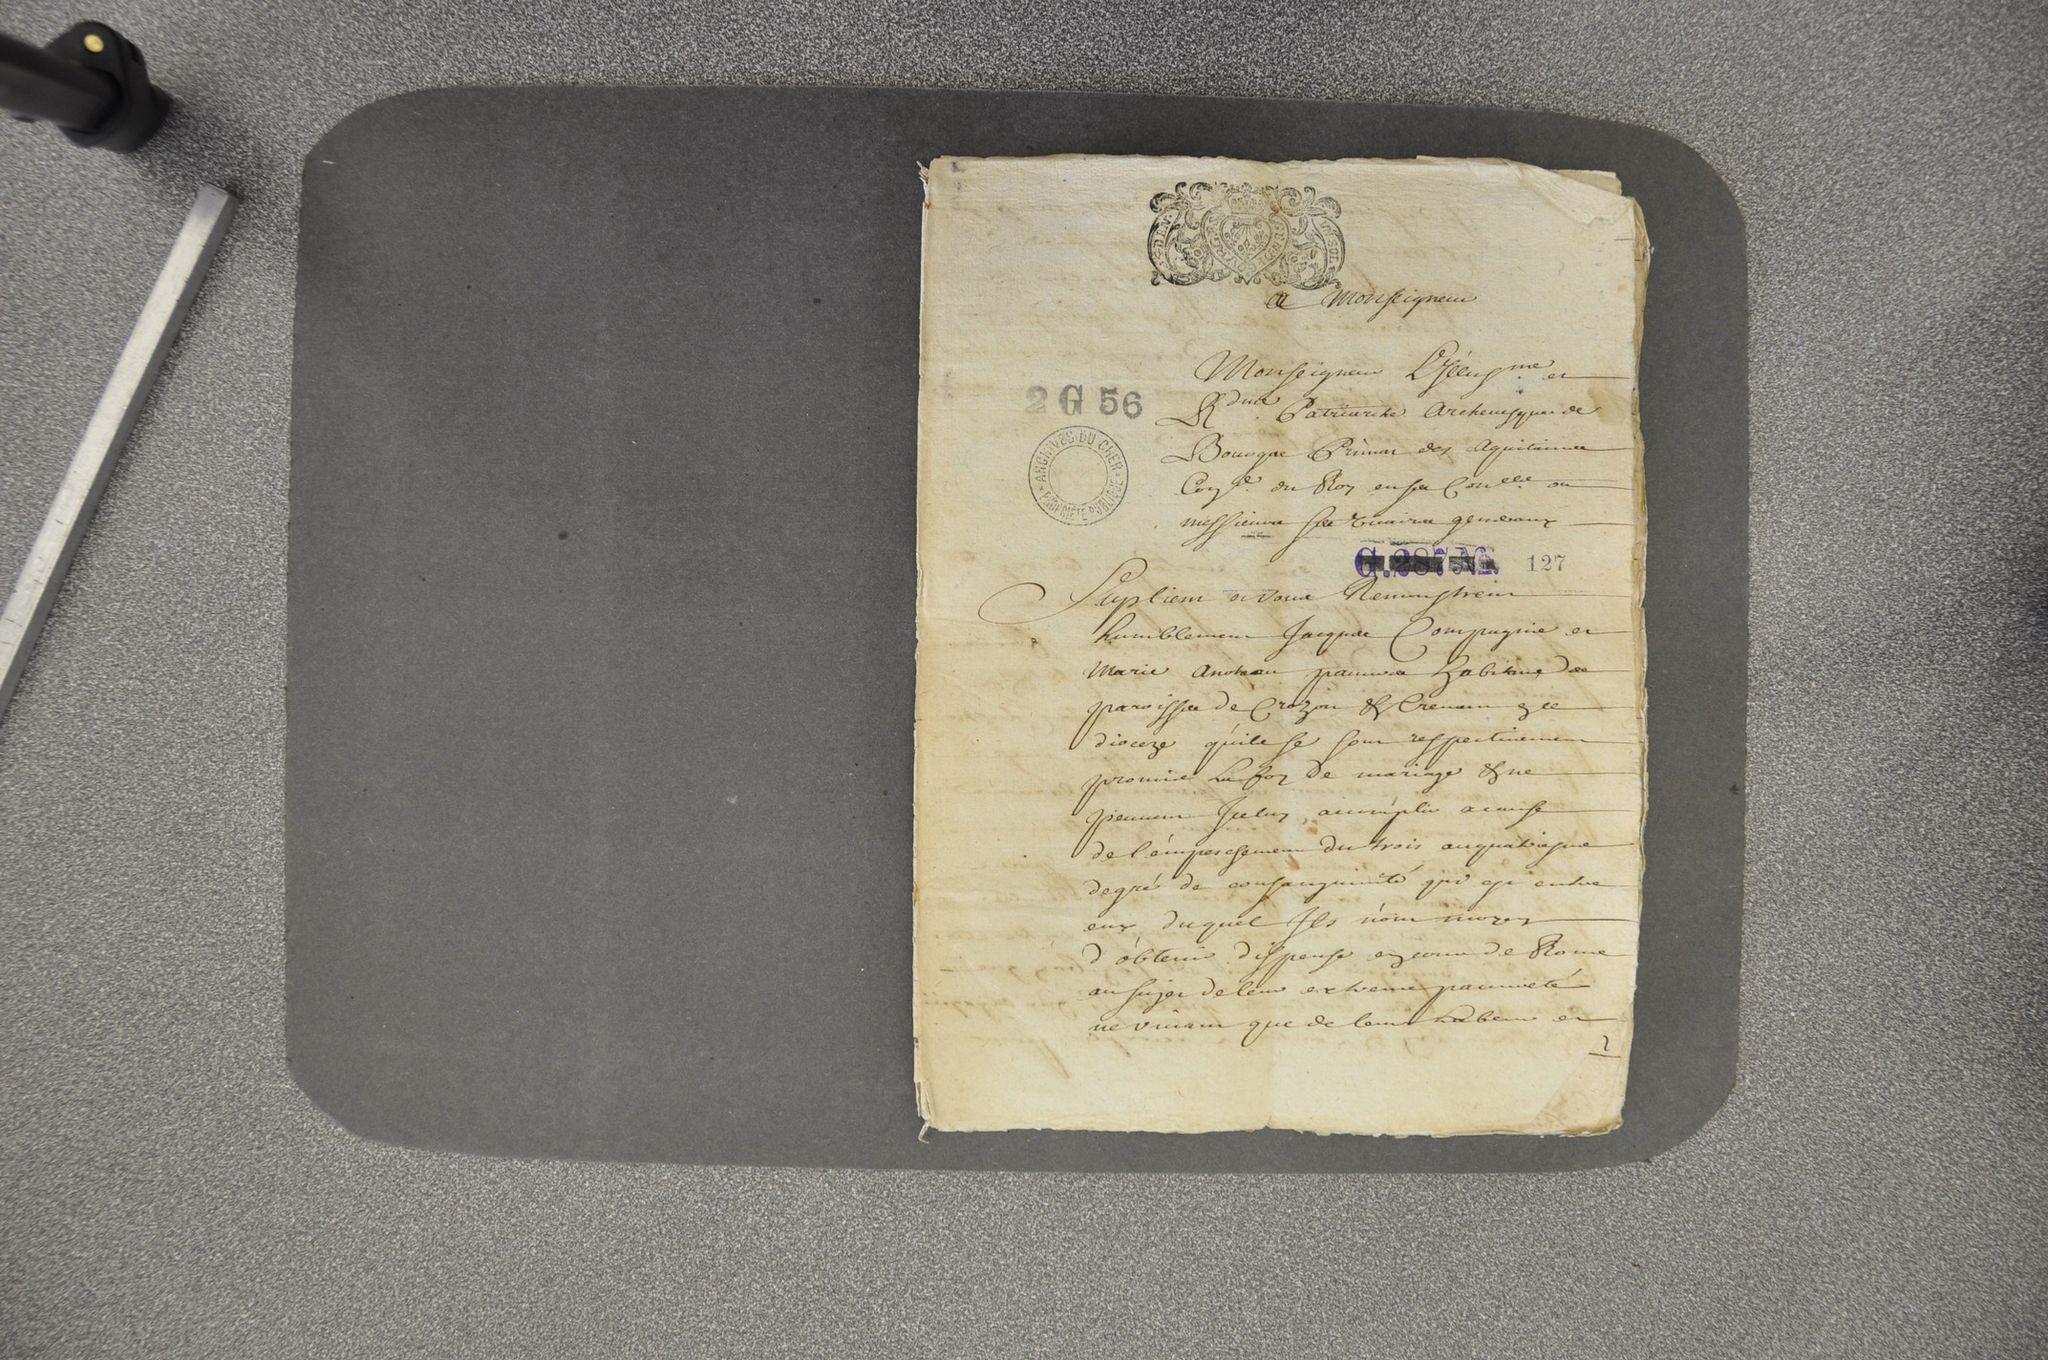 A Monseigneur
Monseigneur L'Illus.me et
R.dme Patriarche Archevesque de
Bourges Primat des Aquitaines
Con.er du Roy en ses Con.lls ou
messieurs ses vicaires generaux
2 G 56
ARCHIVES DU CHER
PROPRIÉTÉ PUBLIQUE
G. 287 127
Suplient et vous Remonstrent
humblement Jacques Compagnie et
Marie pauvres habitans des
paroisses de Crozon & Crevant en ce
dioceze qu'ils se sont respectivement
promis la foy de mariage & ne
peuvent Iceluy accomplir a cause
de l'empeschement du trois au quatriesme
degré de consanguinité qui est entre
eux duquel Ils n'ont moyen
d'obtenir dispense en cour de Rome
au sujet de leur extreme pauvreté
ne vivant que de leur labeur et